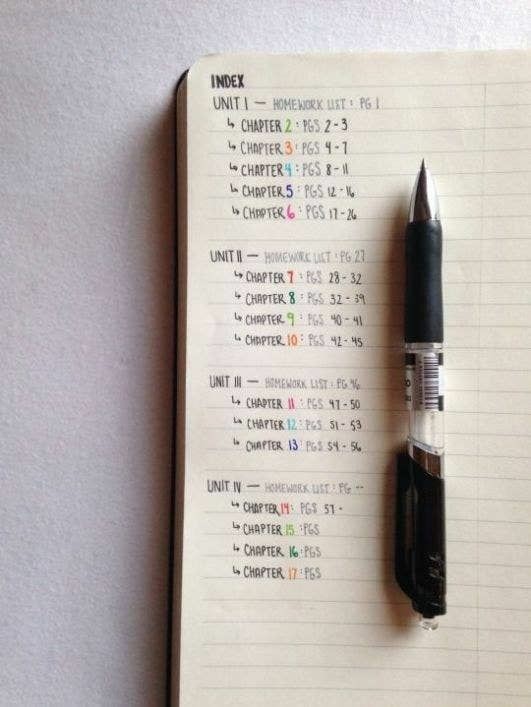 INDEX
UNIT I — HOMEWORK LIST: PG 1
↳ CHAPTER 2: PGS 2-3
↳ CHAPTER 3: PGS 4-7
↳ CHAPTER 4: PGS 8-11
↳ CHAPTER 5: PGS 12-16
↳ CHAPTER 6: PGS 17-26
UNIT II — HOMEWORK LIST: PG 27
↳ CHAPTER 7: PGS 28-32
↳ CHAPTER 8: PGS 32-39
↳ CHAPTER 9: PGS 40-41
↳ CHAPTER 10: PGS 42-45
UNIT III — HOMEWORK LIST: PG 46
↳ CHAPTER 11: PGS 47-50
↳ CHAPTER 12: PGS 51-53
↳ CHAPTER 13: PGS 54-56
UNIT IV — HOMEWORK LIST: PG --
↳ CHAPTER 14: PGS 57-
↳ CHAPTER 15: PGS
↳ CHAPTER 16: PGS
↳ CHAPTER 17: PGS